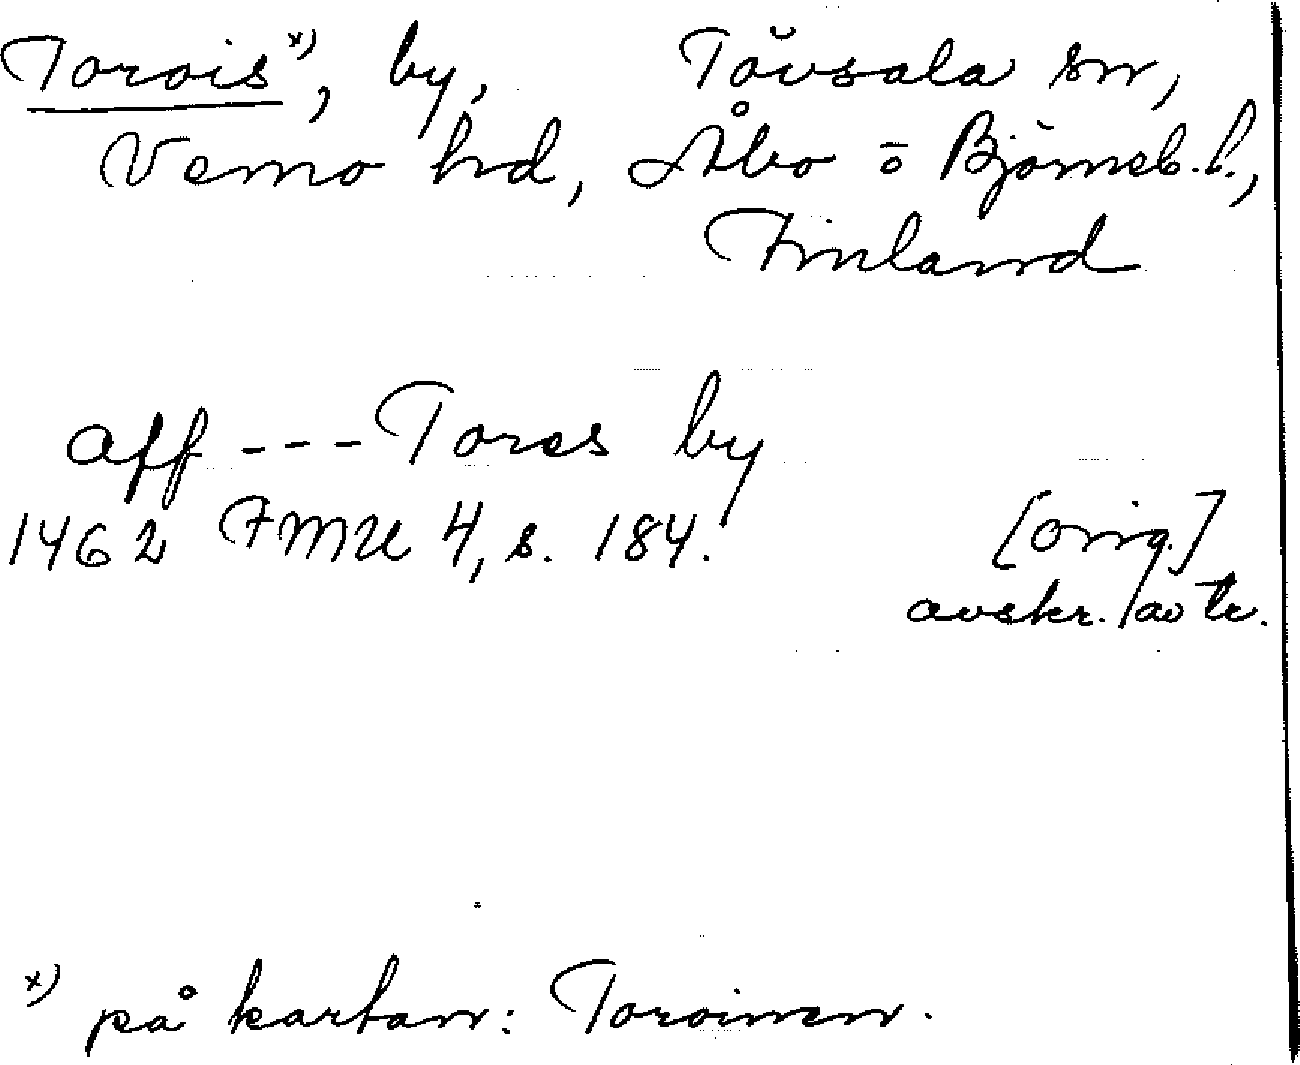 Torois x), by, Tövsala sn,
Vemo hd, Åbo o Björneb. l.,
Finland
aff --- Tores by
1462 FMU 4, s. 184. [orig.]
avskr. / av tr.
x) på kartan: Toroinen.